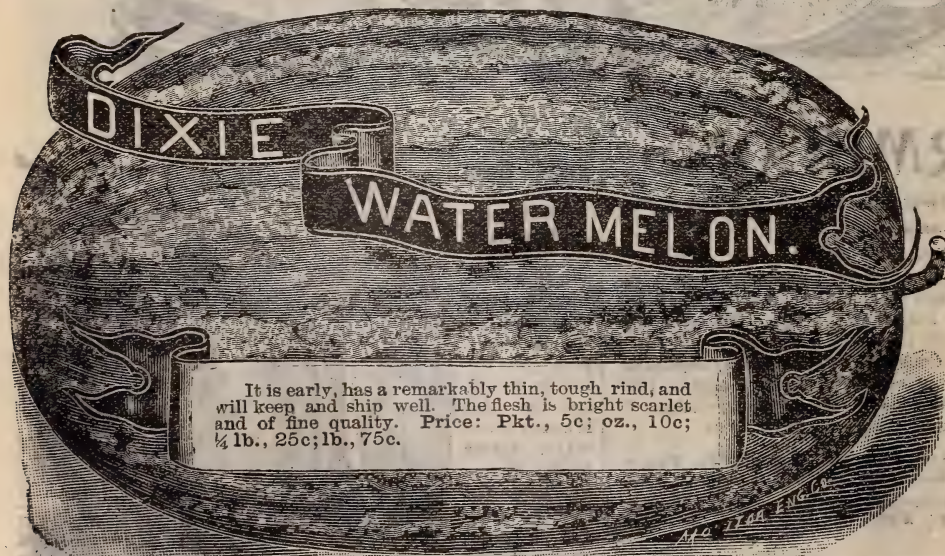 DIXIE
WATERMELON.
It is early, has a remarkably thin, tough rind, and
will keep and ship well. The flesh is bright scarlet
and of fine quality. Price: Pkt., 5c; oz., 10c;
¼ lb., 25c; lb., 75c.
ENG. CO.